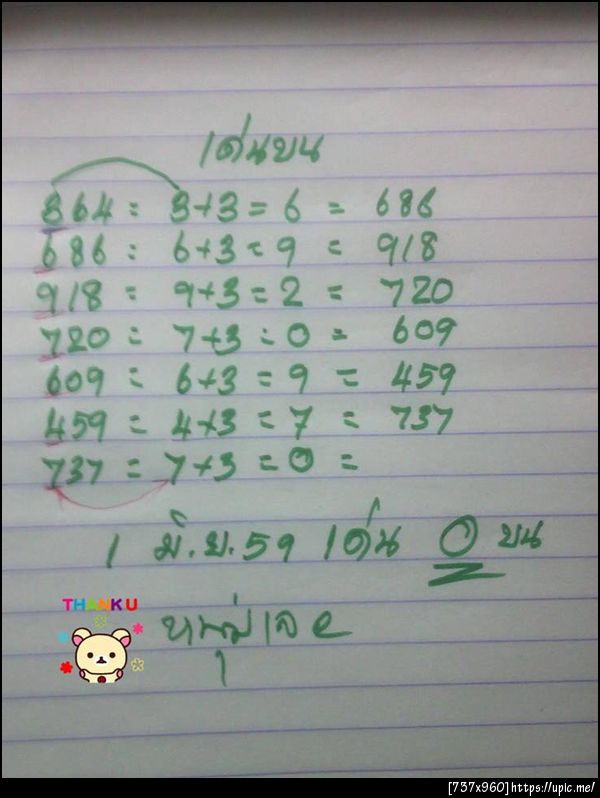 เด่นบน
364 = 3+3 = 6 = 686
686 = 6+3 = 9 = 918
918 = 9+3 = 2 = 720
720 = 7+3 = 0 = 609
609 = 6+3 = 9 = 459
459 = 4+3 = 7 = 737
737 = 7+3 = 0 =
1 มิ.ย.59 เด่น 0 บน
THANK U
[737x960]https://upic.me/